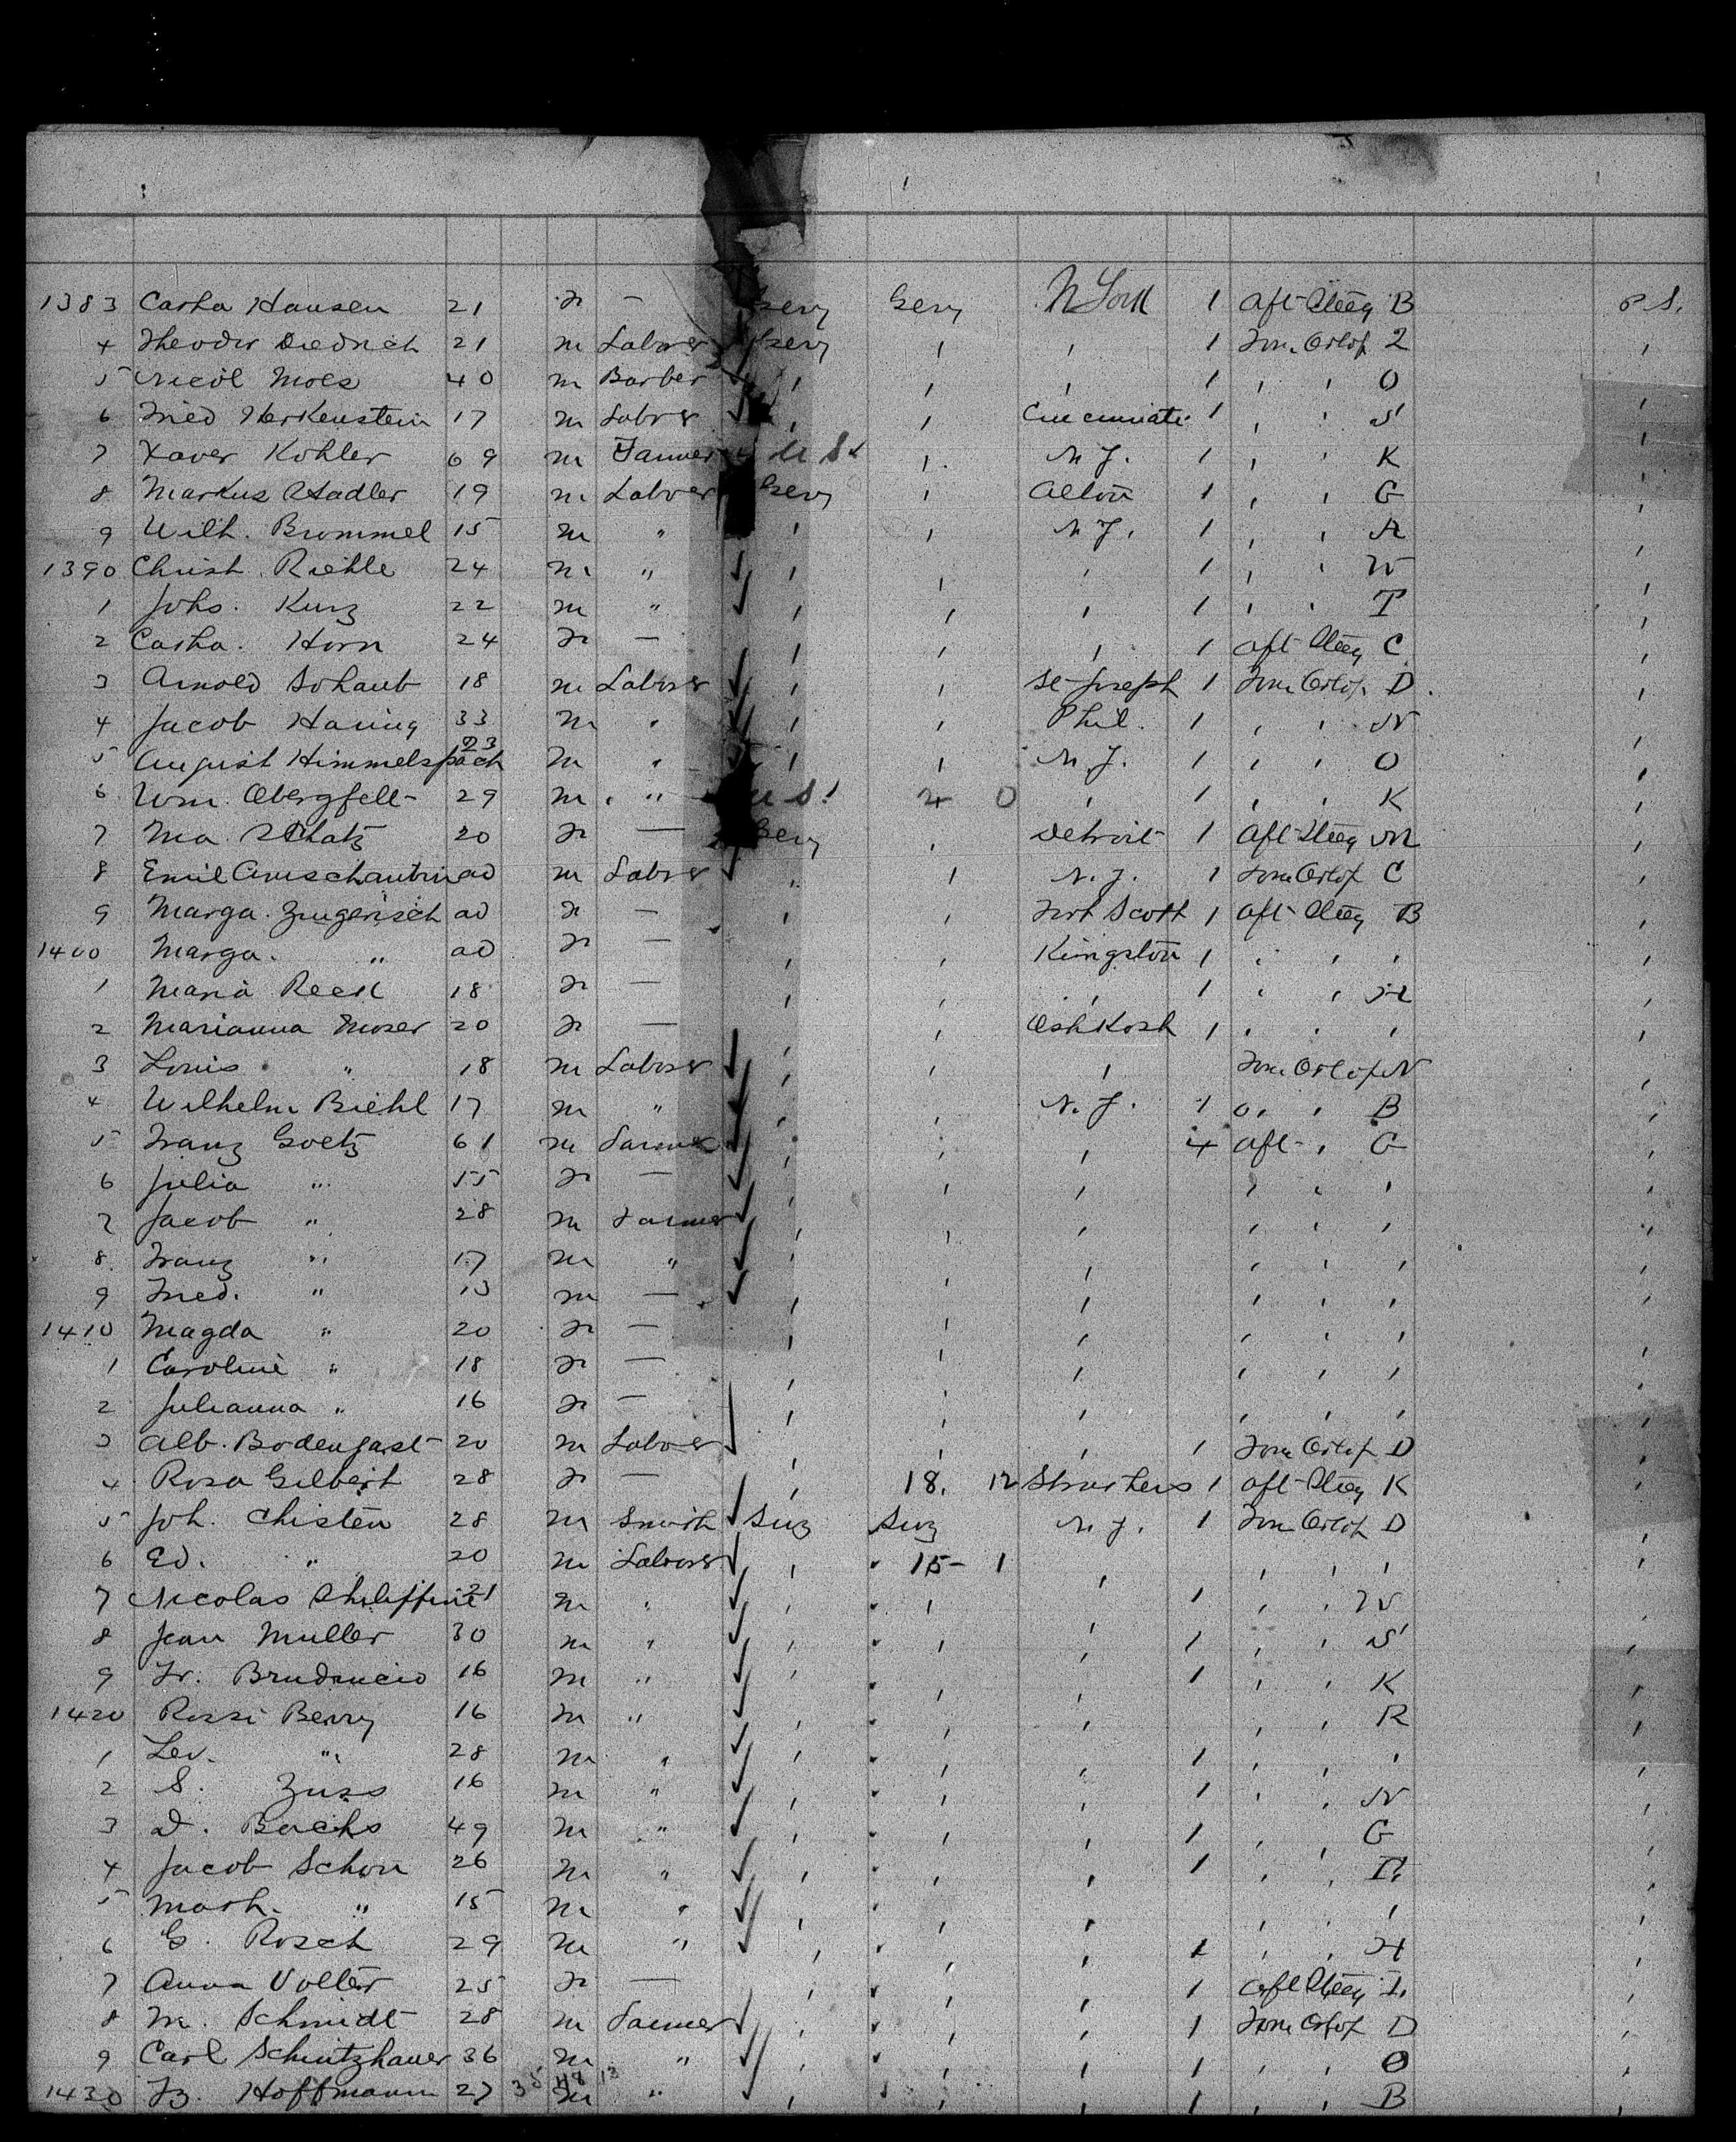 1383 Catha Hansen 21 — Gery Gery N York 1 Aft Steeg B P.S.
4 Theodor Diedrich 21 m Labrer Gery 1 Fom Orlop 2
5 Nicol Moes 40 m Barber 1 O
6 Fried Herkenstein 17 m Labrer Cincinnati 1 S
7 Xaver Kohler 69 m Farmer U S. N.J. 1 K
8 Markus Stadler 19 m Labrer Gery Alton 1 G
9 Wilh. Brommel 15 m " N.J. 1 A
1390 Christ. Riehle 24 m " 1 W
1 Johs. Kurz 22 m " 1 T
2 Catha. Horn 24 — 1 Aft Steeg C
3 Arnold Schaub 18 m Labrer St Joseph 1 Fom Orlop. D.
4 Jacob Haring 33 m Phil. 1 N
5 August Himmelspach 23 m N.J. 1 O
6 Wm. Obergfell 29 m " U S! 4 0 1 K
7 Ma. 20 — Gery Detroit 1 Aft Steeg M
8 Emil ad m Labrer N.J. 1 Fom Orlop C
9 Marga. ad — Fort Scott 1 Aft Steeg B
1400 Marga. " ad — Kingston 1
1 Maria Reck 18 — 1 H
2 Marianna Moser 20 — Oshkosh 1
3 Louis " 18 m Labrer Fom Orlop N
4 Wilhelm Biehl 17 m " N.J. 1 B
5 Franz Goetz 61 m Farmer 4 Aft G
6 Julia " 55 —
7 Jacob " 28 m Farmer
8 Franz " 17 m "
9 Fried. " 13 m —
1410 Magda " 20 —
1 Caroline " 18 —
2 Julianna " 16 —
3 Alb. Bodengast 20 m Labrer 1 Fom Orlop D
4 Rosa Gilbert 28 — 18. 12 Struthers 1 Aft Steeg K
5 Joh. Christen 28 m Smith Suz Suz N.J. 1 Fom Orlop D
6 Ed. " 20 m Labrer 15 - 1
7 Nicolas Philippine 21 m 1 W
8 Jean Muller 30 m 1 S
9 Fr. 16 m " 1 K
1420 Rossi Berry 16 m " R
1 Lev. " 28 m 1
2 S. Zuss 16 m " 1 N
3 D. 49 m " 1 G
4 Jacob Schori 26 m " 1
5 Math. " 15 m
6 G. Rosch 29 m " 1 H
7 Anna Volter 25 — 1 Aft Steeg
8 M. Schmidt 28 m Farmer 1 Fom Orlop D
9 Carl Schintzhauer 36 m " 1 O
1430 Fz. Hoffmann 27 m " 1 B